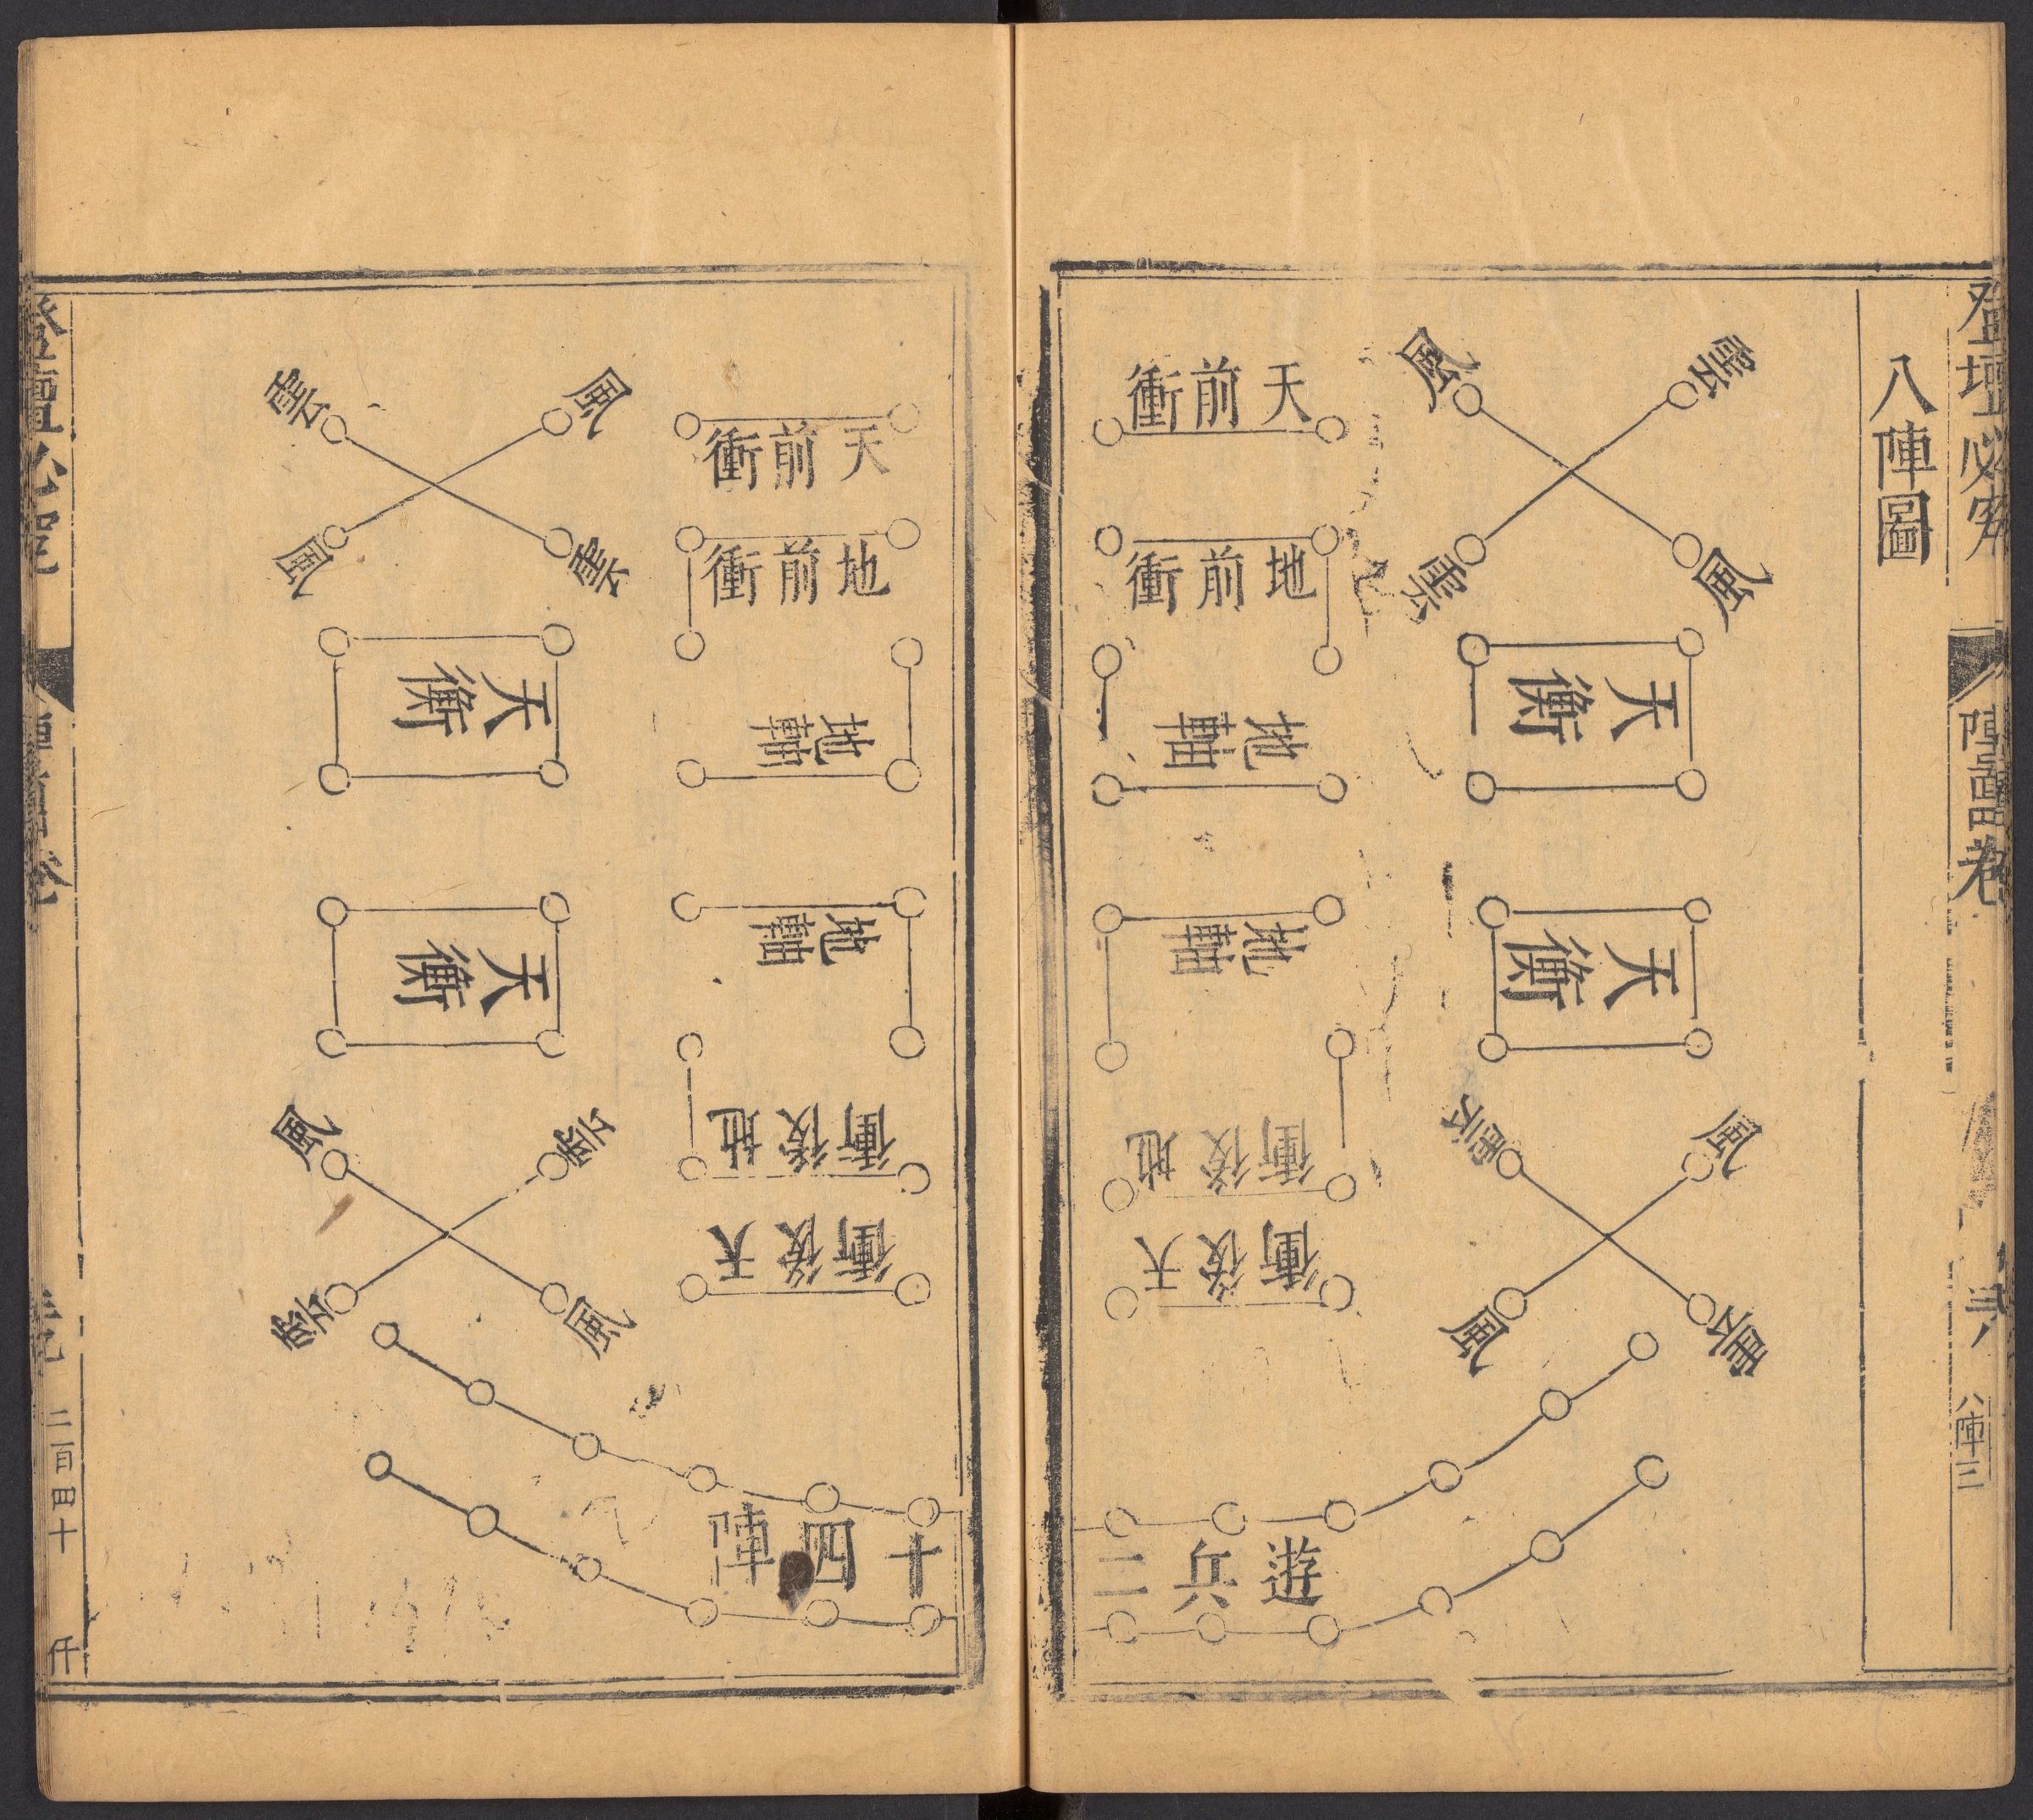 八陣圖
雲
風
雲
風
天衡
天衡
風
雲
雲
風
天前衝
地前衝
地軸
地軸
地後衝
天後衝
遊兵二
天前衝
地前衝
地軸
地軸
地後衝
天後衝
十四陣
風
雲
雲
風
天衡
天衡
雲
風
風
雲
登壇必究
陣圖卷
八陣三
登壇必究
二百四十
仟